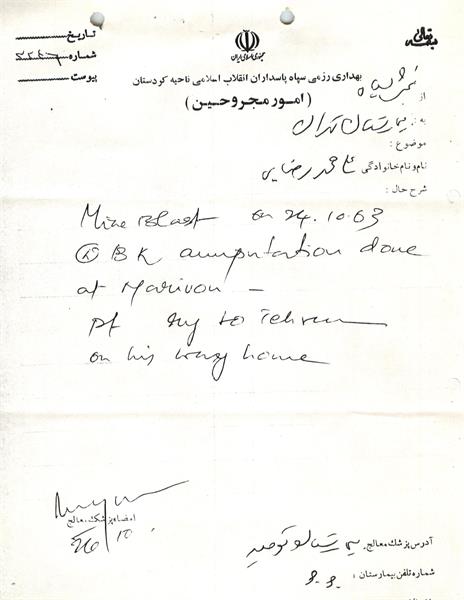 بسمه تعالی
تاریخ :
شماره :
پیوست
جمهوری اسلامی ایران
بهداری رزمی سپاه پاسداران انقلاب اسلامی ناحیه کردستان
( امور مجروحین )
از :
به : بیمارستان تهران
موضوع :
نام و نام خانوادگی
شرح حال :
Mine Blast on 24.10.63
BK amputation done
at Marivon -
pt to Tehran
on his way home
امضاء پزشک معالج
26/10
آدرس پزشک معالج : بیمارستان توحید
شماره تلفن بیمارستان :